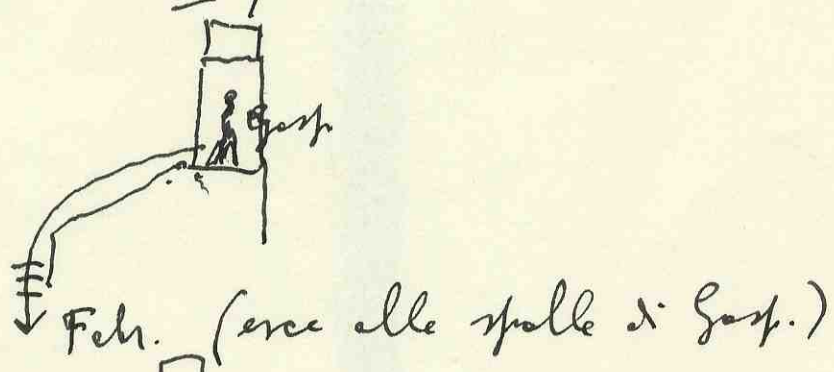 Gasp.
Febr. (esce alle spalle di Gasp.)